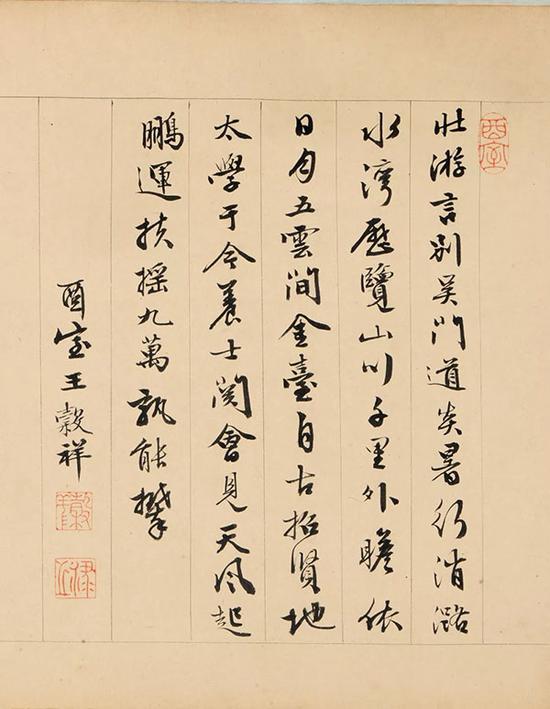 酉室
壯游言別吳門道炎暑行消潞
水灣歷覽山川千里外瞻依
日月五雲間金臺自古招賢地
太學于今養士關會見天風起
鵬運扶搖九萬孰能攀
酉室王穀祥
穀祥
祿之